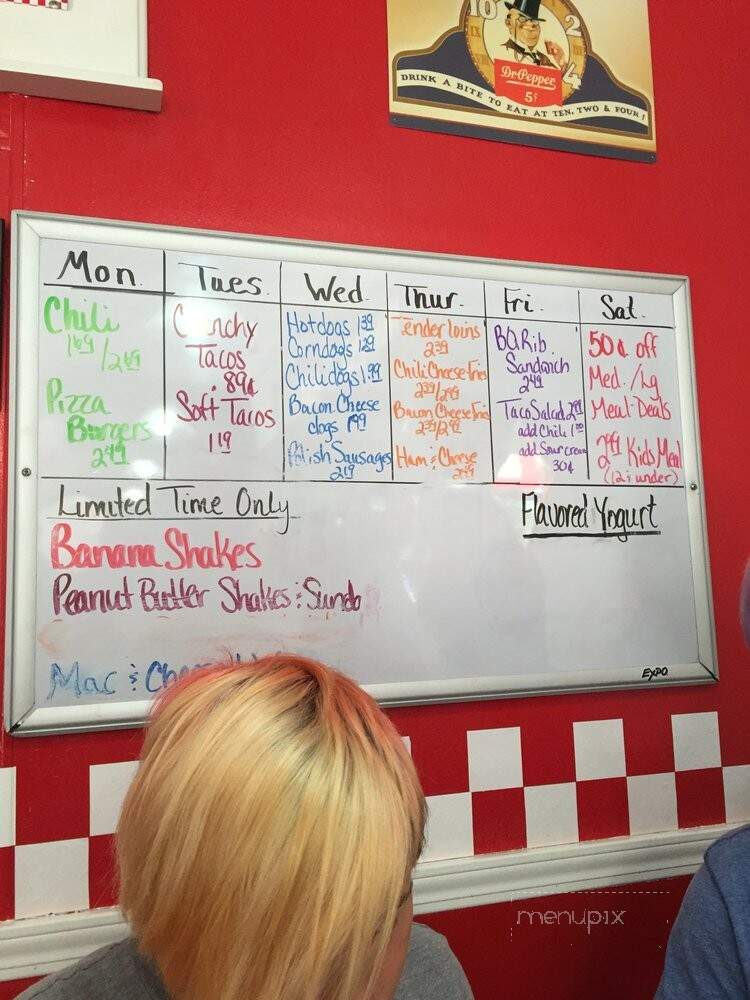 10 2 4
Dr Pepper
5¢
DRINK A BITE TO EAT AT TEN, TWO & FOUR!
Mon.
Chili
1.69/2.69
Pizza
Burgers
2.49
Tues.
Crunchy
Tacos
.89¢
Soft Tacos
1.19
Wed.
Hotdogs 1.39
Corndogs 1.29
Chilidogs 1.99
Bacon Cheese
dogs 1.99
Polish Sausages
2.19
Thur.
Tenderloins
2.39
Chili Cheese Fries
2.39/2.99
Bacon Cheese Fries
2.39/2.99
Ham & Cheese
2.49
Fri.
BQ Rib
Sandwich
2.49
Taco Salad 2.99
add Chili 1.00
add Sour cream
30¢
Sat.
50¢ off
Med. /Lg
Meal-Deals
2.99 Kids Meal
(12 & under)
Limited Time Only
Banana Shakes
Peanut Butter Shakes & Sunda
Mac &
Flavored Yogurt
EXPO
menupix